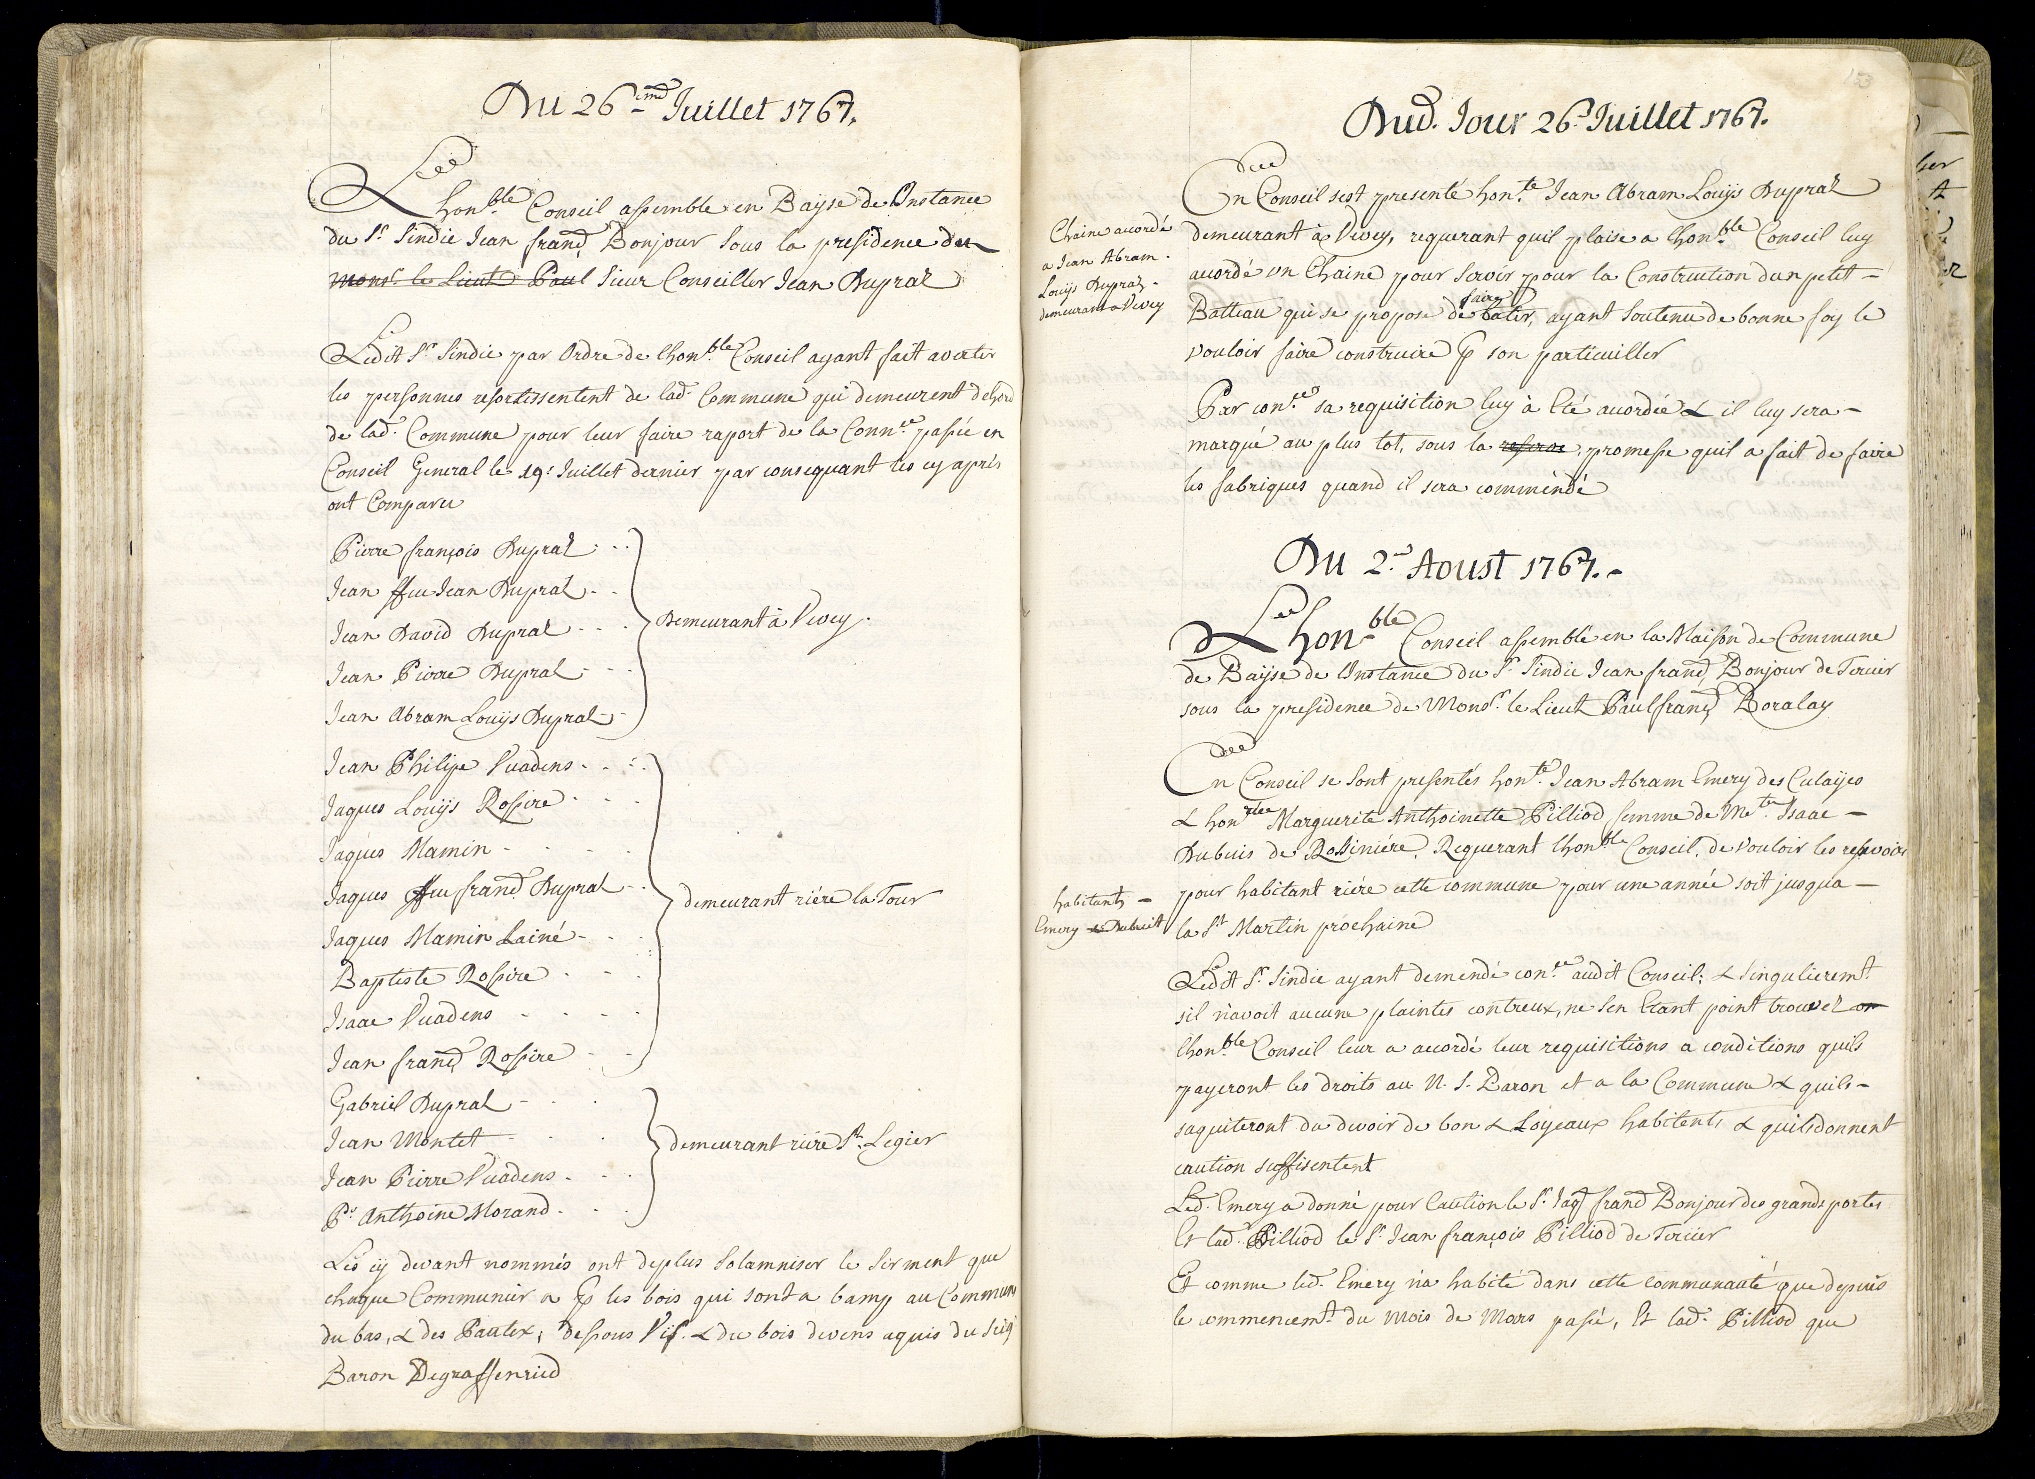 Du 26.me Juillet 1767.
Led
honble Conseil assemble en Bayse de Instance
du Sr Sindic Jean franç Bonjour sous la presidence du
Monsr le Lieut Paul Sieur Conseiller Jean Dupraz
Ledit Sr Sindic par Ordre de lhonble Conseil ayant fait avertir
les personnes resortissentent de lad. Commune qui demeurent dehord
de lad. Commune pour leur faire raport de la Connce pasée en
Conseil General le 19e Juillet dernier par consequant les cy après
ont Comparu
Pierre françois Dupraz
Jean ffeu Jean Dupraz
Jean David Dupraz
Jean Pierre Dupraz
Jean Abram Louijs Dupraz
Demeurant à Vevey.
Jean Philipe Vuadens
Jaques Louijs Rossire
Jaques Mamin
Jaques ffeu franç Dupraz
Jaques Mamin Lainé
Baptiste Rossire
Isaac Vuadens
Jean franç Rossire
demeurant riére la Tour
Gabriel Dupraz
Jean Montet
Jean Pierre Vuadens
Pre Anthoine Morand
demeurant riére St Legier
Les cy devant nommés ont deplus Solamniser le Serment que
chaque Communier a p les bois qui sont a bamp au Commun
du bas, & des Pautex, dessous Vis. & du bois devens aquis du Seigr
Baron Degraffenried
Dud. Jour 26e Juillet 1767.
Chaine accordé
a Jean Abram
Louijs Dupraz
demeurant a Vevey
dud
En Conseil sest presenté honte Jean Abram Louijs Dupraz
demeurant à Vevey, requerant quil plaise a lhonble Conseil luy
accordé un Chaine pour servir pour la Construction dun petit
faire
Batteau qui se propose de batir, ayant soutenu de bonne foy le
vouloir faire construire p son particuiller
Par conce sa requisition luy à Eté accordée & il luy sera
marqué au plus tot, sous la reserve promesse quil a fait de faire
les fabriques quand il sera commendé
Du 2d Aoust 1767.
Led
Lhonble Conseil assemblé en la Maison de Commune
de Bayse de Instance du Sr Sindic Jean franç Bonjour de Tercier
sous la presidence de Monsr le Lieut Paul franç Boralay
dud
En Conseil se sont presentés honte Jean Abram Emery des Culayes
& honrée Marguerite Anthoinette Pilliod femme de Mre Isaac
Dubuis de Rossiniére, Requerant lhonble Conseil, de vouloir les resevoir
pour habitant riére cette commune pour une année soit jusqua
la St Martin prochaine
habitants
Emery & Dubuit
Ledit Sr Sindic ayant demendé conce audit Conseil; & singulieremt
sil navoit aucune plaintes contreux, ne sen Etant point trouvez on
lhonble Conseil leur a accordé leur requisitions a conditions quils
payeront les droits au N. S. Baron et a la Commune & quils
saquiteront du devoir de bon & Loyeaux habitents & quils donnent
caution suffisentent
Led. Emery a donné pour Caution le Sr Jaq franç Bonjour des grands portes
Et lad. Pilliod le Sr Jean françois Pilliod de Tercier
Et comme led. Emery na habité dans cette communauté que depuis
le commencemt du mois de Mars pasé, Et lad. Pilliod que